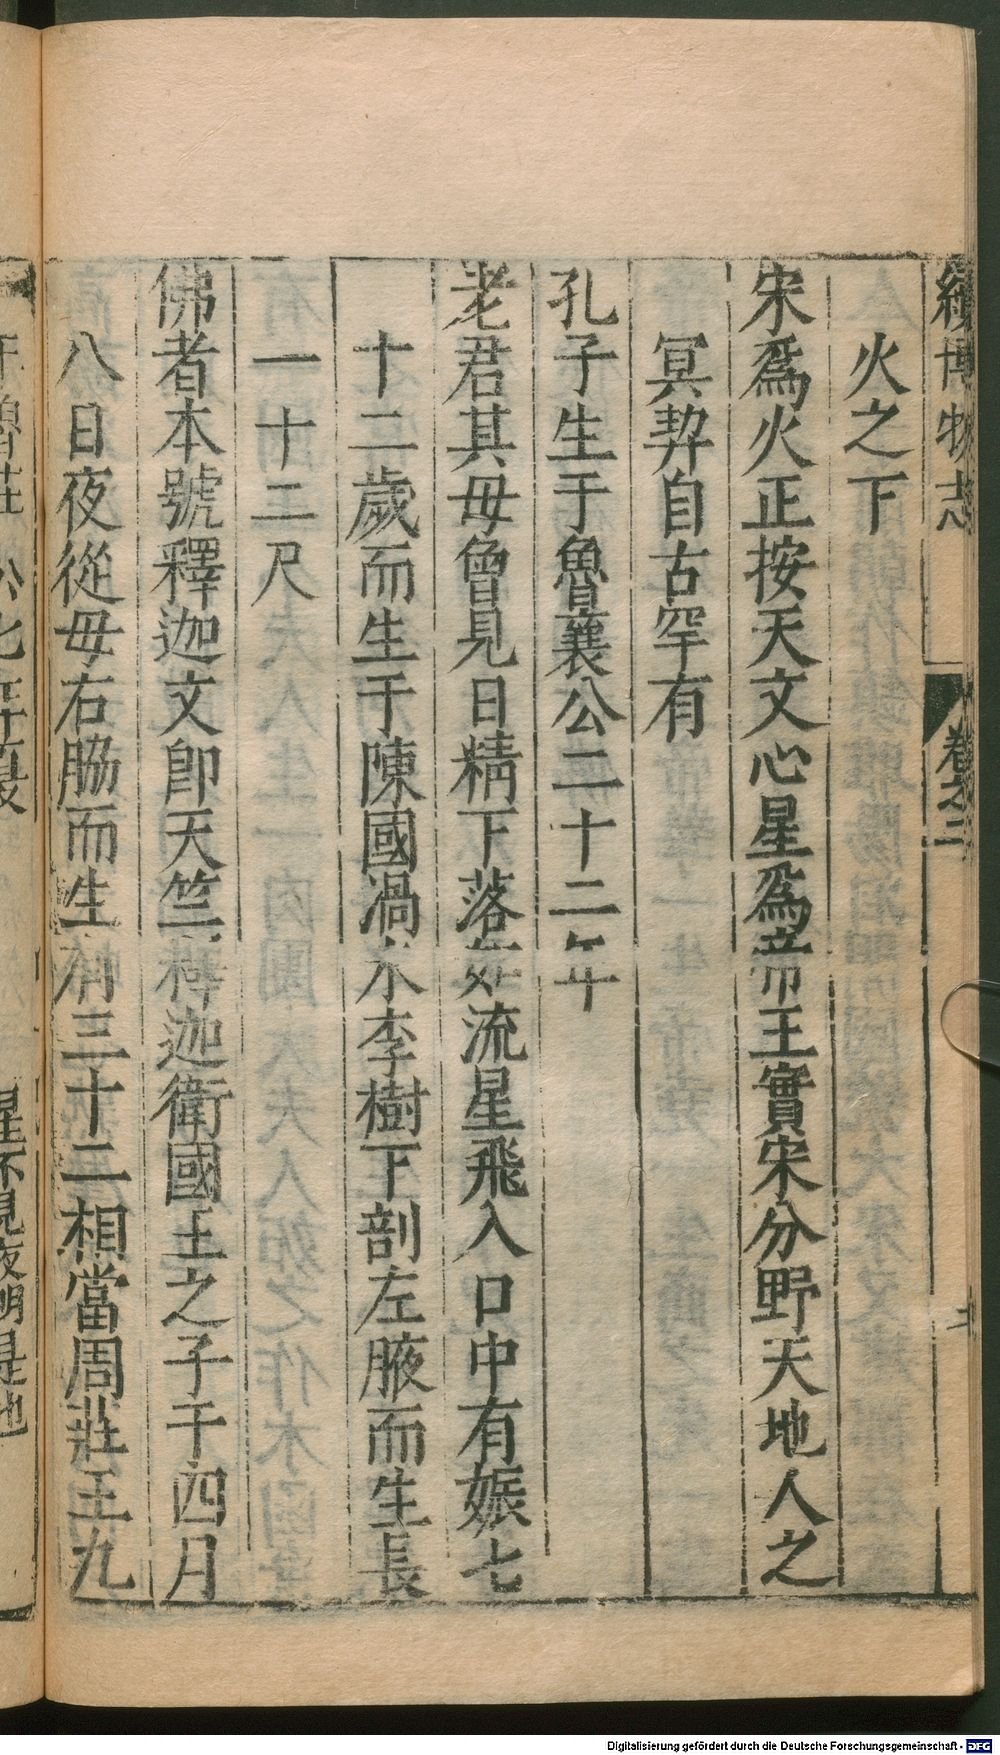 續博物志 卷之二
火之下
宋爲火正按天文心星爲帝王實宋分野天地人之
冥契自古罕有
孔子生于魯襄公二十二年
老君其母曾見日精下落如流星飛入口中有娠七
十二歲而生于陳國渦水李樹下剖左腋而生長
一十二尺
佛者本號釋迦文卽天竺釋迦衛國王之子于四月
八日夜從母右脇而生有三十二相當周莊王九
星不見夜明是也
Digitalisierung gefördert durch die Deutsche Forschungsgemeinschaft - DFG